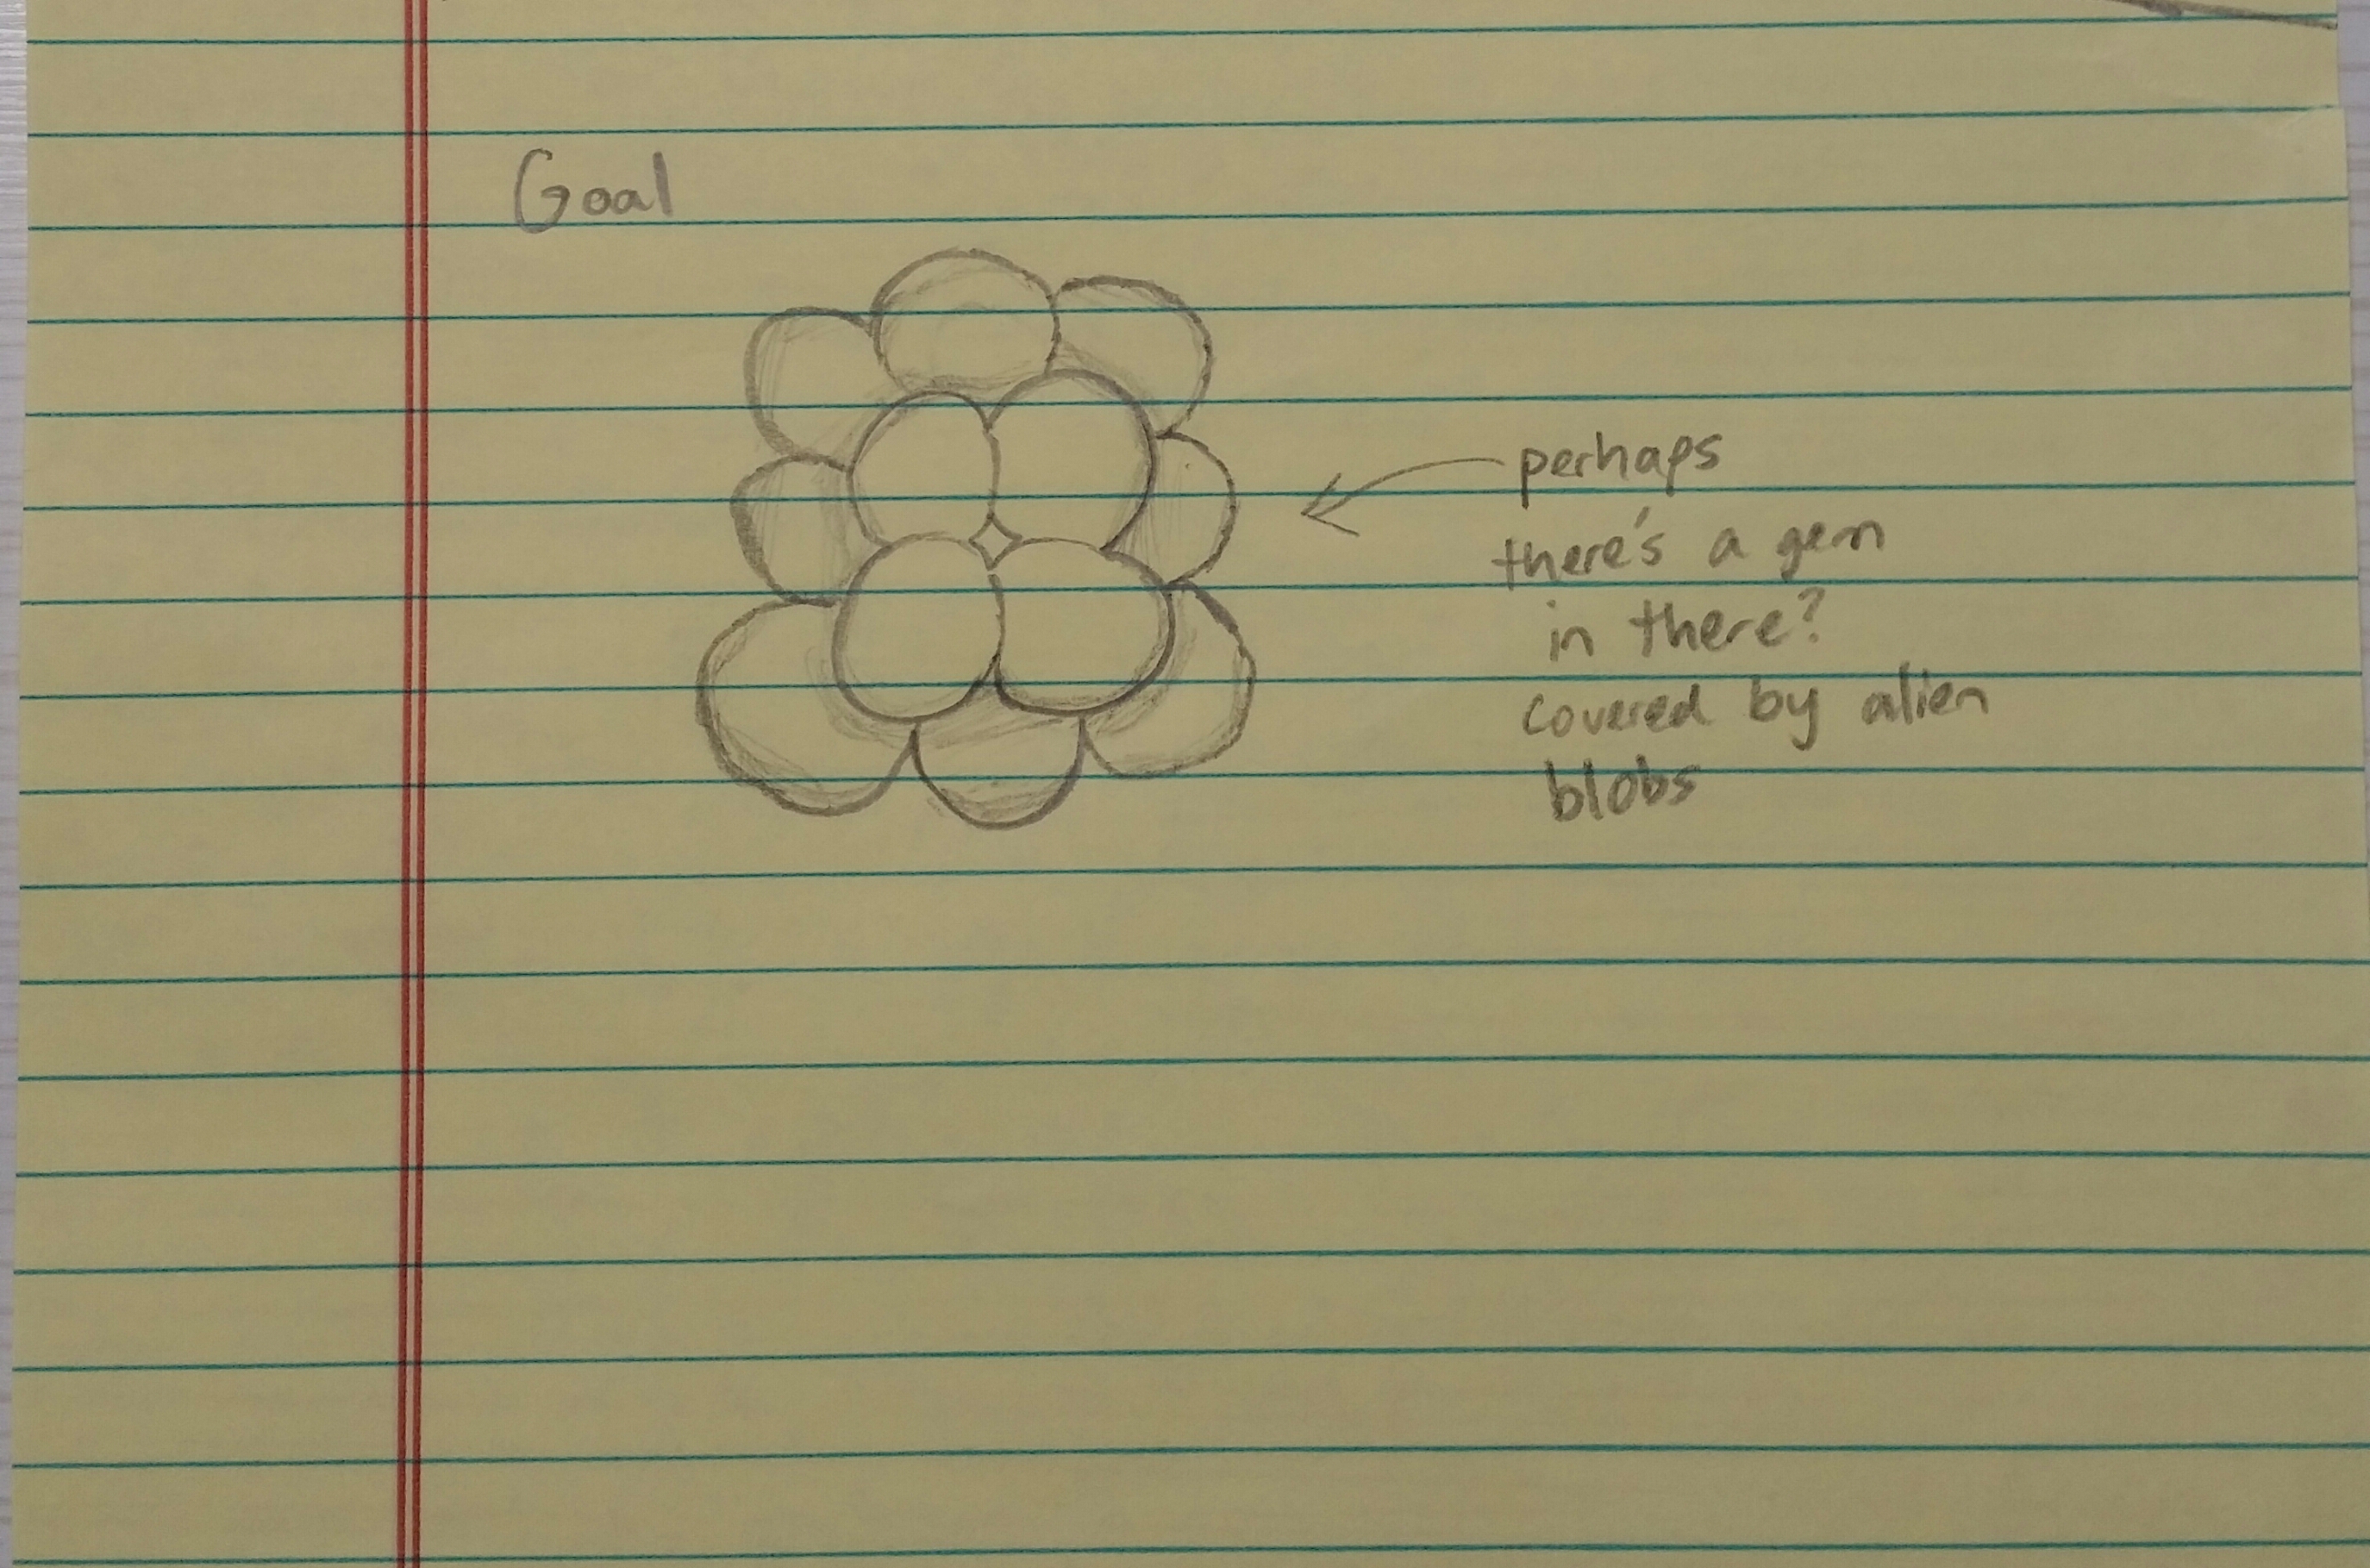 Goal
perhaps
there's a gem
in there?
covered by alien
blobs